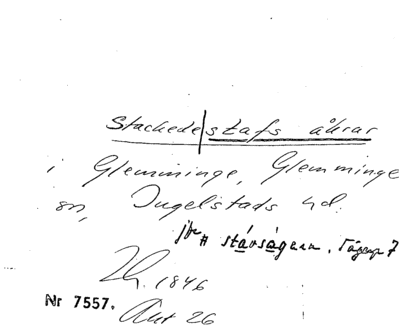 Stackede|stafs åkrar
i Glemminge, Glemminge
sn, Ingelstads hd.
jfr # stavsågern, Tågarp 7
Lh. 1846
Nr 7557.
Akt 26